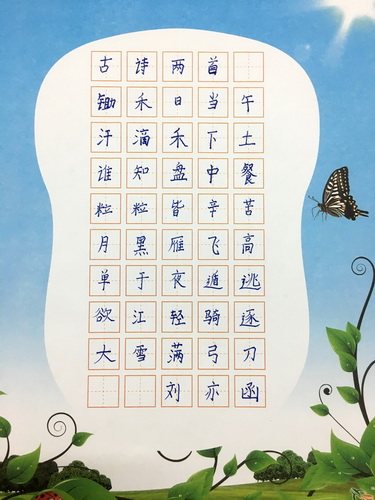 古诗两首
锄禾日当午
汗滴禾下土
谁知盘中餐
粒粒皆辛苦
月黑雁飞高
单于夜遁逃
欲江轻骑逐
大雪满弓刀
刘亦函